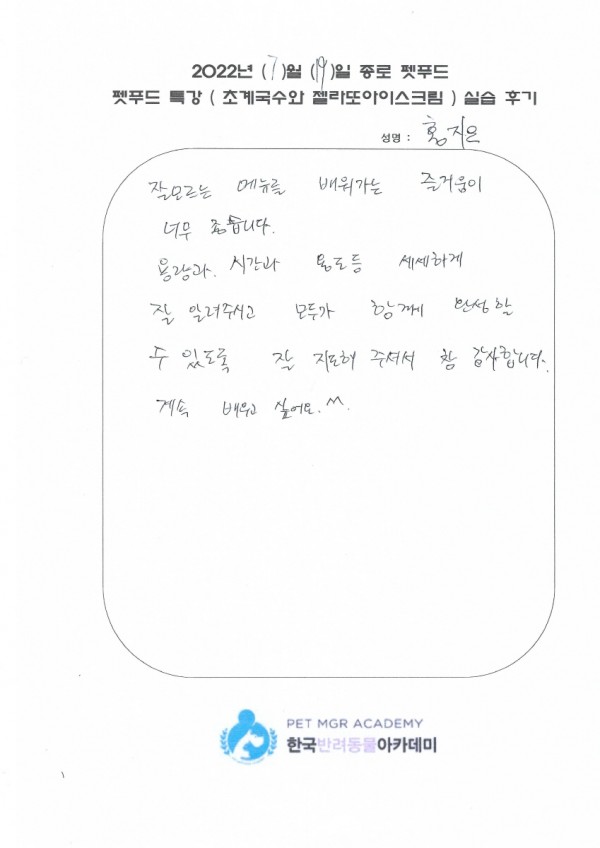 2022년 (7)월 (19)일 종로 펫푸드
펫푸드 특강 ( 초계국수와 젤라또아이스크림 ) 실습 후기
성명 : 홍지은
잘모르는 메뉴를 배워가는 즐거움이
너무 좋습니다.
용량과. 시간과 용도등 세세하게
잘 알려주시고 모두가 함께 완성할
수 있도록 잘 지도해 주셔서 참 감사합니다.
계속 배우고 싶어요. ^^.
PET MGR ACADEMY
한국반려동물아카데미